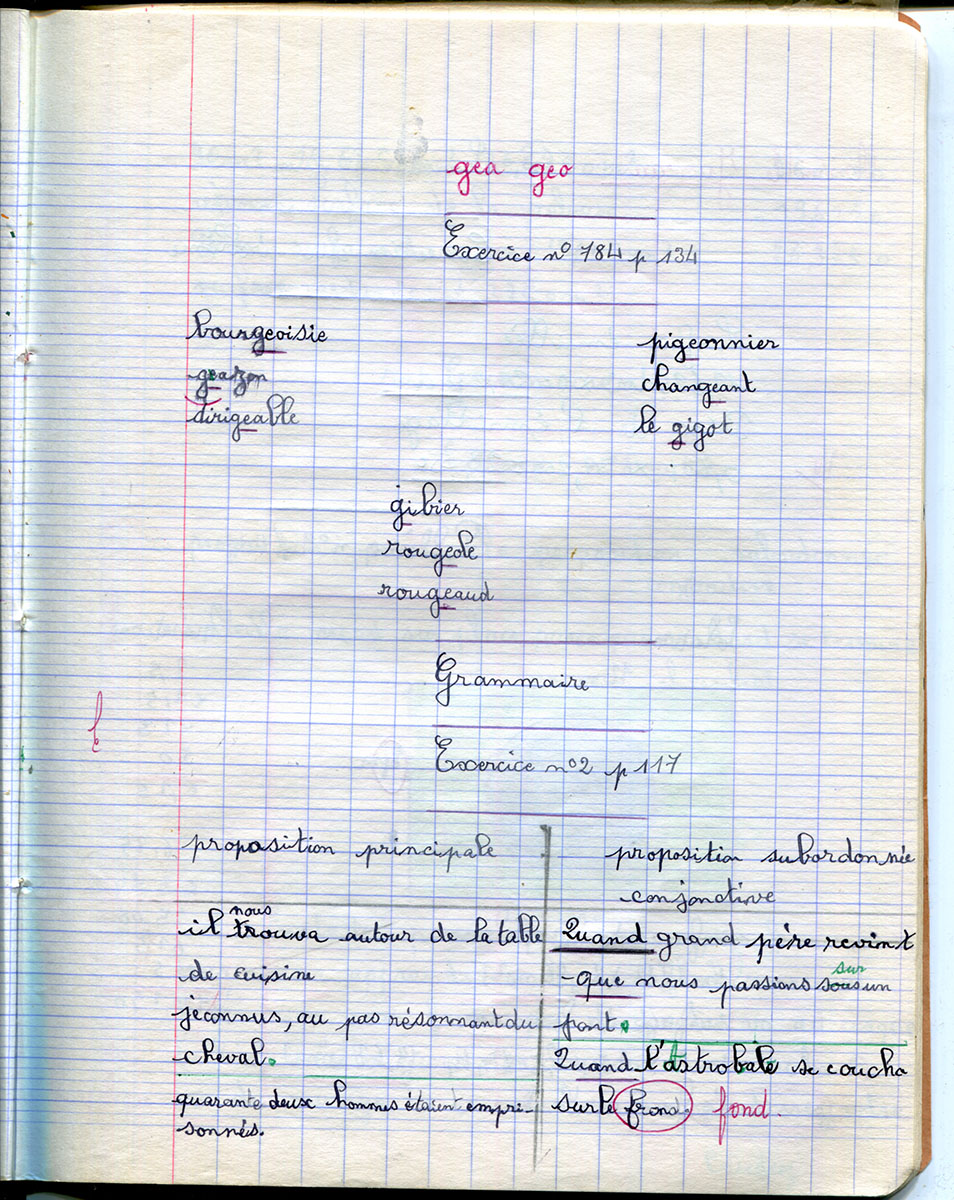 gea geo
Exercice nº 784 p 134
bourgeoisie
geazon
dirigeable
pigeonnier
changeant
le gigot
gibier
rougeole
rougeaud
Grammaire
Exercice nº2 p 117
proposition principale
il nous trouva autour de la table
de cuisine
jeconnus, au pas résonnant du
cheval.
quarante deux hommes étaient empri-
sonnés.
proposition subordonnée
conjonctive
Quand grand père revint
- que nous passions sous sur un
pont.
Quand l'astrobale se coucha
sur le frond. fond.